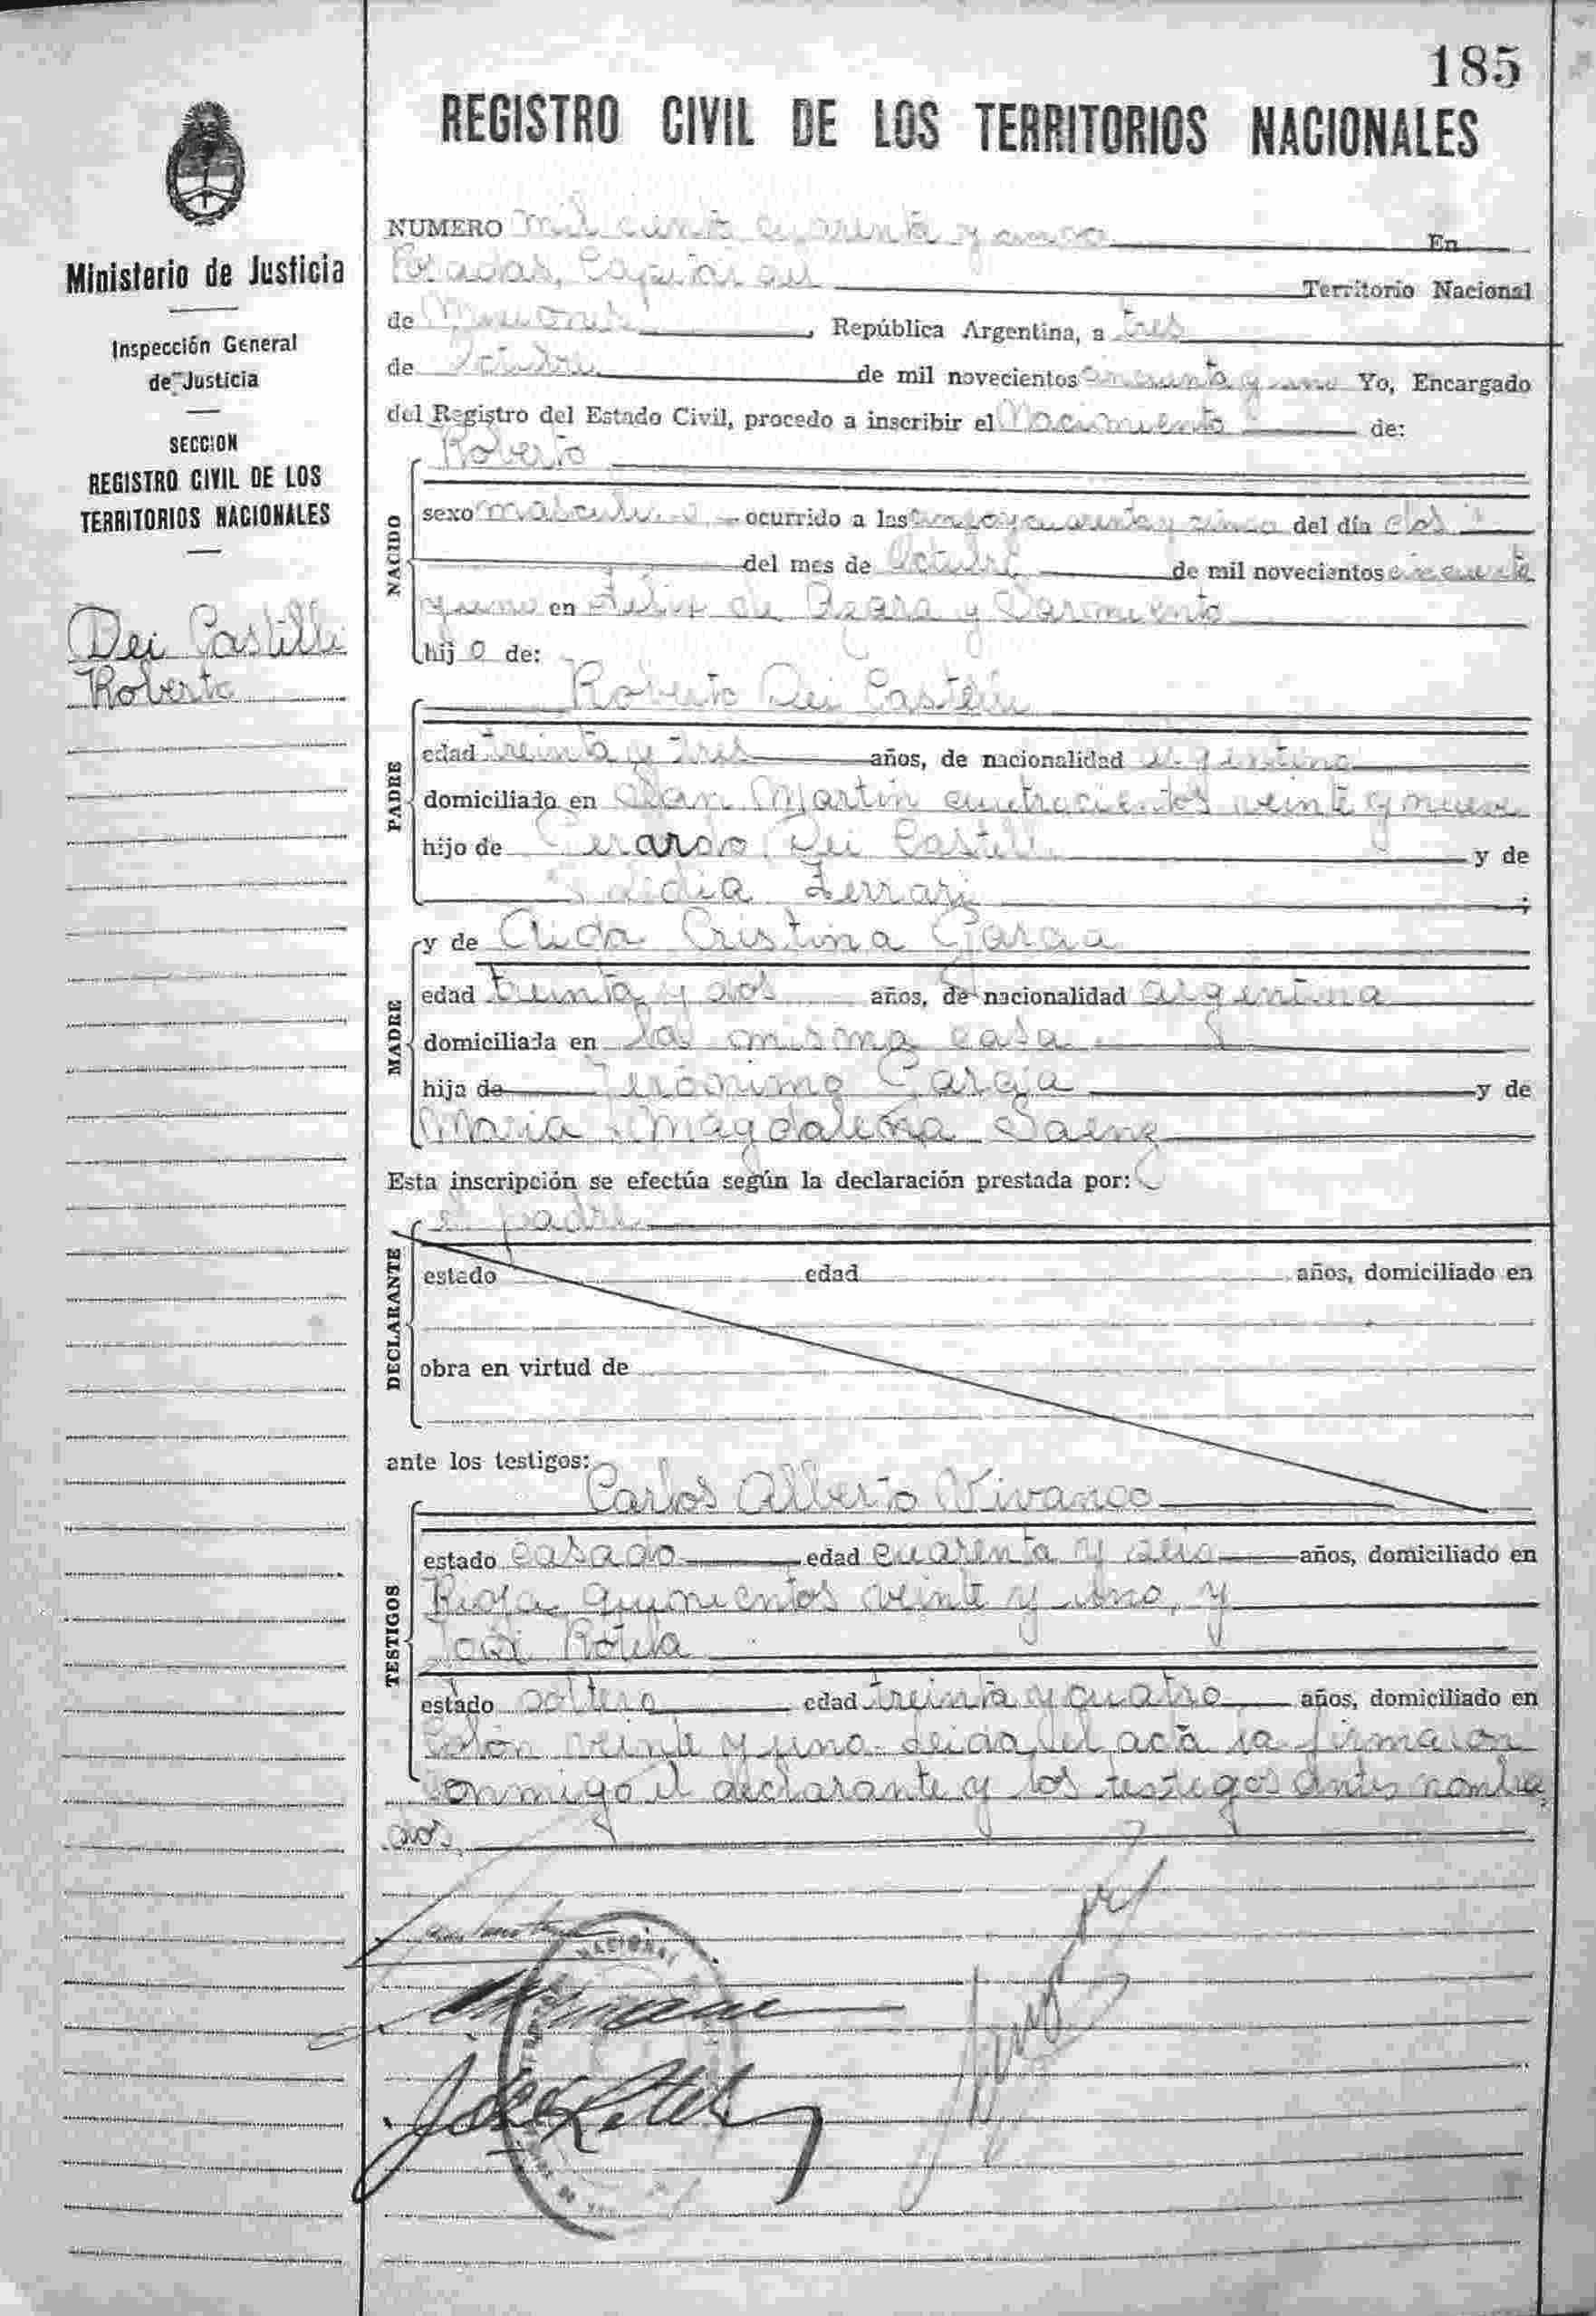 185
REGISTRO CIVIL DE LOS TERRITORIOS NACIONALES
Ministerio de Justicia
Inspección General
de Justicia
SECCION
REGISTRO CIVIL DE LOS
TERRITORIOS NACIONALES
Dei Castelli
Roberto
NUMERO mil ciento cuarenta y cinco En
Posadas, Capital del Territorio Nacional
de Misiones, República Argentina, a tres
de Octubre de mil novecientos cincuenta y uno Yo, Encargado
del Registro del Estado Civil, procedo a inscribir el Nacimiento de:
Roberto
NACIDO
sexo masculino ocurrido a las y cuarenta y cinco del día dos
del mes de Octubre de mil novecientos cincuenta
y uno en Félix de Azara y Sarmiento
hijo de:
Roberto Dei Castelli
PADRE
edad treinta y tres años, de nacionalidad argentina
domiciliado en San Martín cuatrocientos veinte y nueve
hijo de Gerardo Dei Castelli y de
Lidia Ferrari ;
MADRE
y de Aida Cristina Garcia
edad treinta y dos años, de nacionalidad argentina
domiciliada en la misma casa
hija de Jerónimo García y de
Maria Magdalena Saenz
Esta inscripción se efectúa según la declaración prestada por:
el padre
DECLARANTE
estado edad años, domiciliado en
obra en virtud de
ante los testigos:
Carlos Alberto Vivanco
TESTIGOS
estado casado edad cuarenta y seis años, domiciliado en
Rioja quinientos veinte y uno, y
José Rotela
estado soltero edad treinta y cuatro años, domiciliado en
Colón veinte y uno. Leida el acta la firmaron
conmigo el declarante y los testigos antes nombra
dos.
NACIONAL